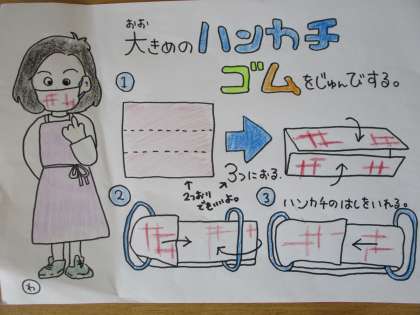 おお
大きめのハンカチ
ゴムをじゅんびする。
①
3つにおる。
2つおり
でもいいよ。
②
③
ハンカチのはしをいれる。
わ